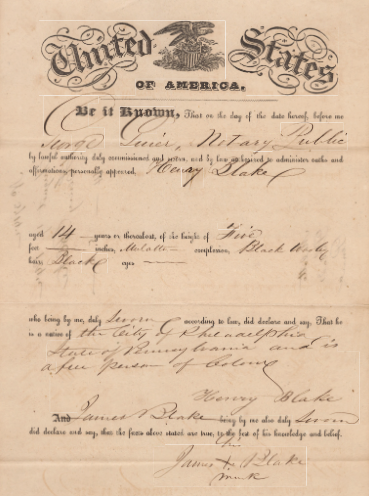 United States
OF AMERICA,
Be it Known, That on the day of the date hereof, before me
George Notary Public
by lawful authority duly commissioned and sworn, and by law authorized to administer oaths and
affirmations, personally appeared, Henry Blake
aged 14 years or thereabout, of the height of Five
feet inches, Mulatto complexion, Black Wooly
hair, Black eyes
who being by me, duly Sworn according to law, did declare and say, That he
is a native of the City of Philadelphia
State of Pennsylvania and is
a free person of Colour
Henry Blake
And James Blake being by me also duly Sworn
did declare and say, that the facts above stated are true, to the best of his knowledge and belief.
his
James X Blake
mark